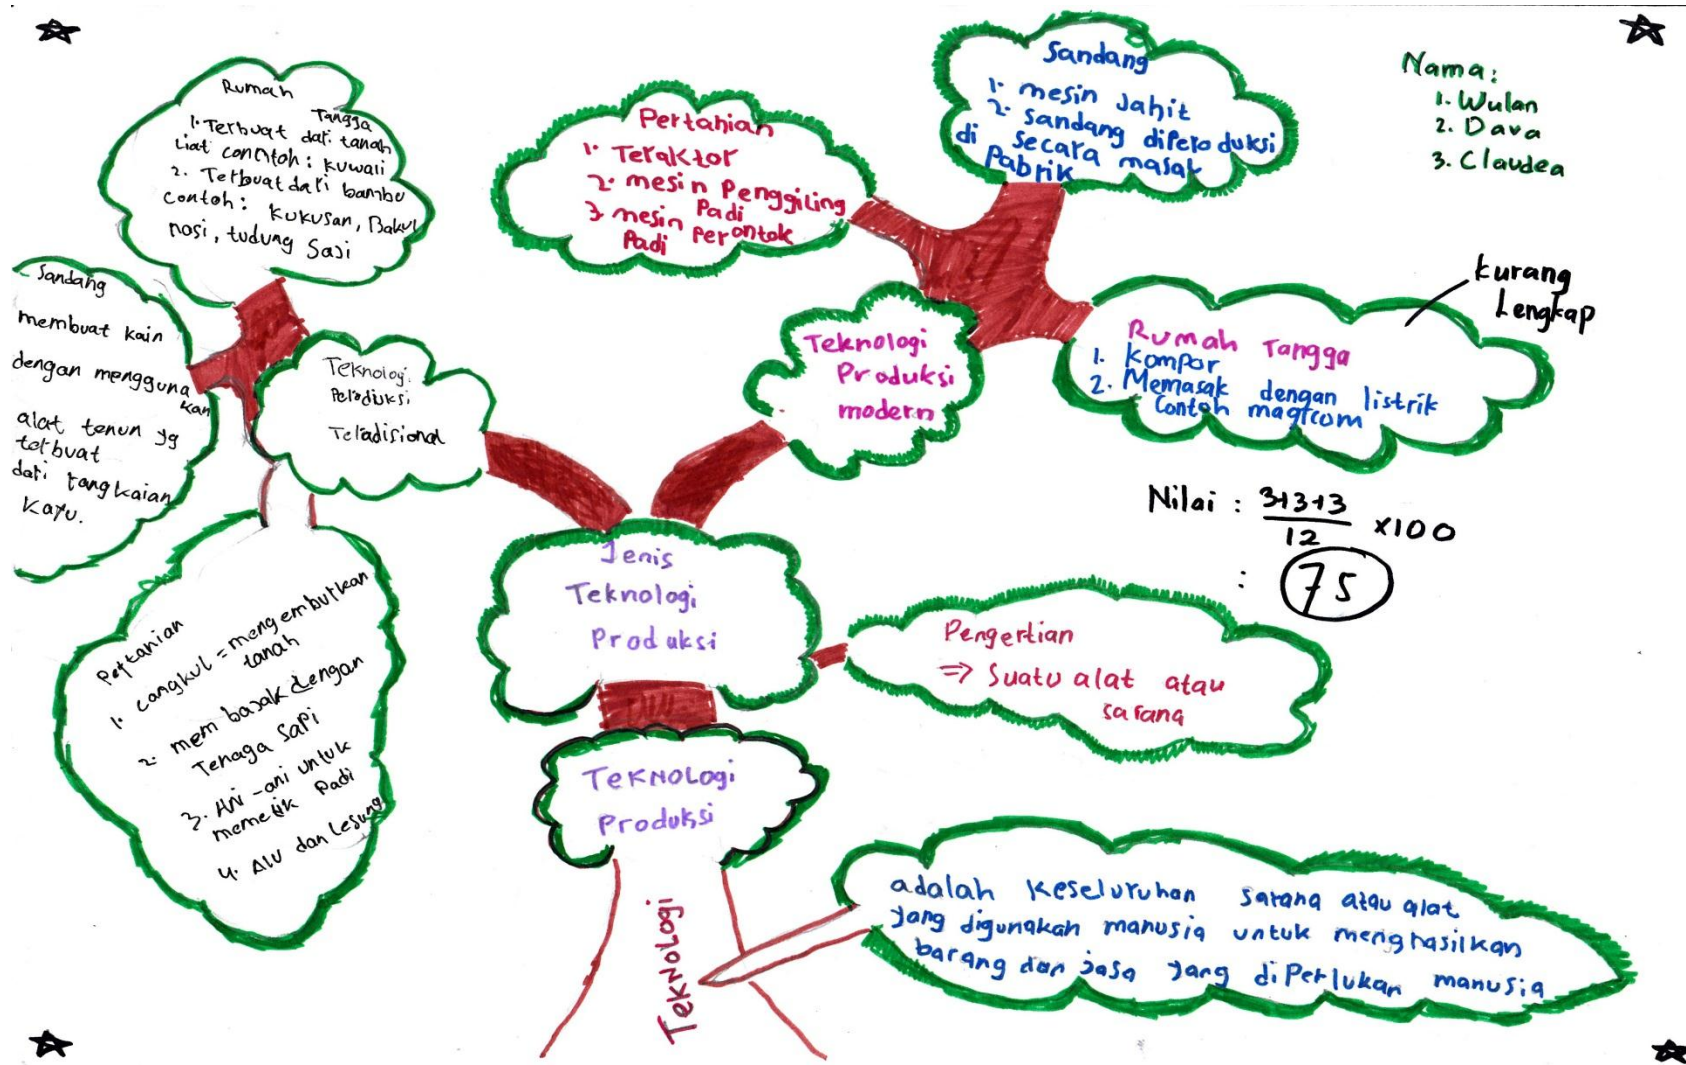 Nama:
1. Wulan
2. Dava
3. Claudea
Rumah
Tangga
1. Terbuat dari tanah
Liat conntoh : kuwali
2. Terbuat dari bambu
contoh : kukusan, Bakul
nasi, tudung Saji
Sandang
membuat kain
dengan mengguna
kan
alat tenun yg
terbuat
dari rangkaian
Kayu.
Teknologi
Peroduksi
Teradisional
Pertanian
1. cangkul = mengemburkan
tanah
2. mem bajak dengan
Tenaga Sapi
3. ANi -ani untuk
memetik Padi
4. Alu dan Lesung
Pertanian
1. Teraktor
2. mesin Penggiling
Padi
3 mesin Perontok
Padi
Sandang
1. mesin Jahit
2. sandang dipero duksi
di secara masal
Pabrik
kurang
Lengkap
Rumah Tangga
1. Kompor
2. Memasak dengan listrik
Contoh magicom
Teknologi
Produksi
modern
Nilai : 3+3+3
12
x100
: 75
Jenis
Teknologi
Produksi
Pengertian
⇒ Suatu alat atau
sarana
TeKNOLOgi
Produksi
TeKNOLOgi
adalah keseluruhan sarana atau alat
yang digunakan manusia untuk menghasilkan
barang dan jasa yang diPerlukan manusia